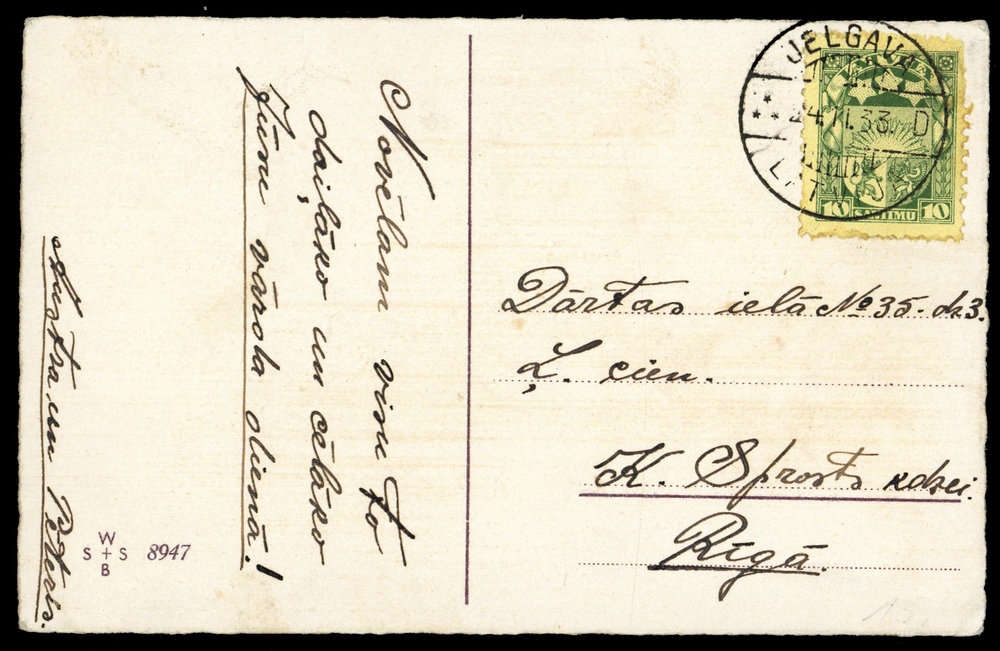 Novēlam visu to
daiļāko un cēlāko
Jūsu vārda dienā!
Austra un Pēteris.
W
S + S 8947
B
JELGAVA
24. 11. 33. D
LATVIJA
10 SANTIMU 10
Dārtas ielā No 35. dz. 3.
Ļ. cien.
K. Sprosts kdzei.
Rīgā.